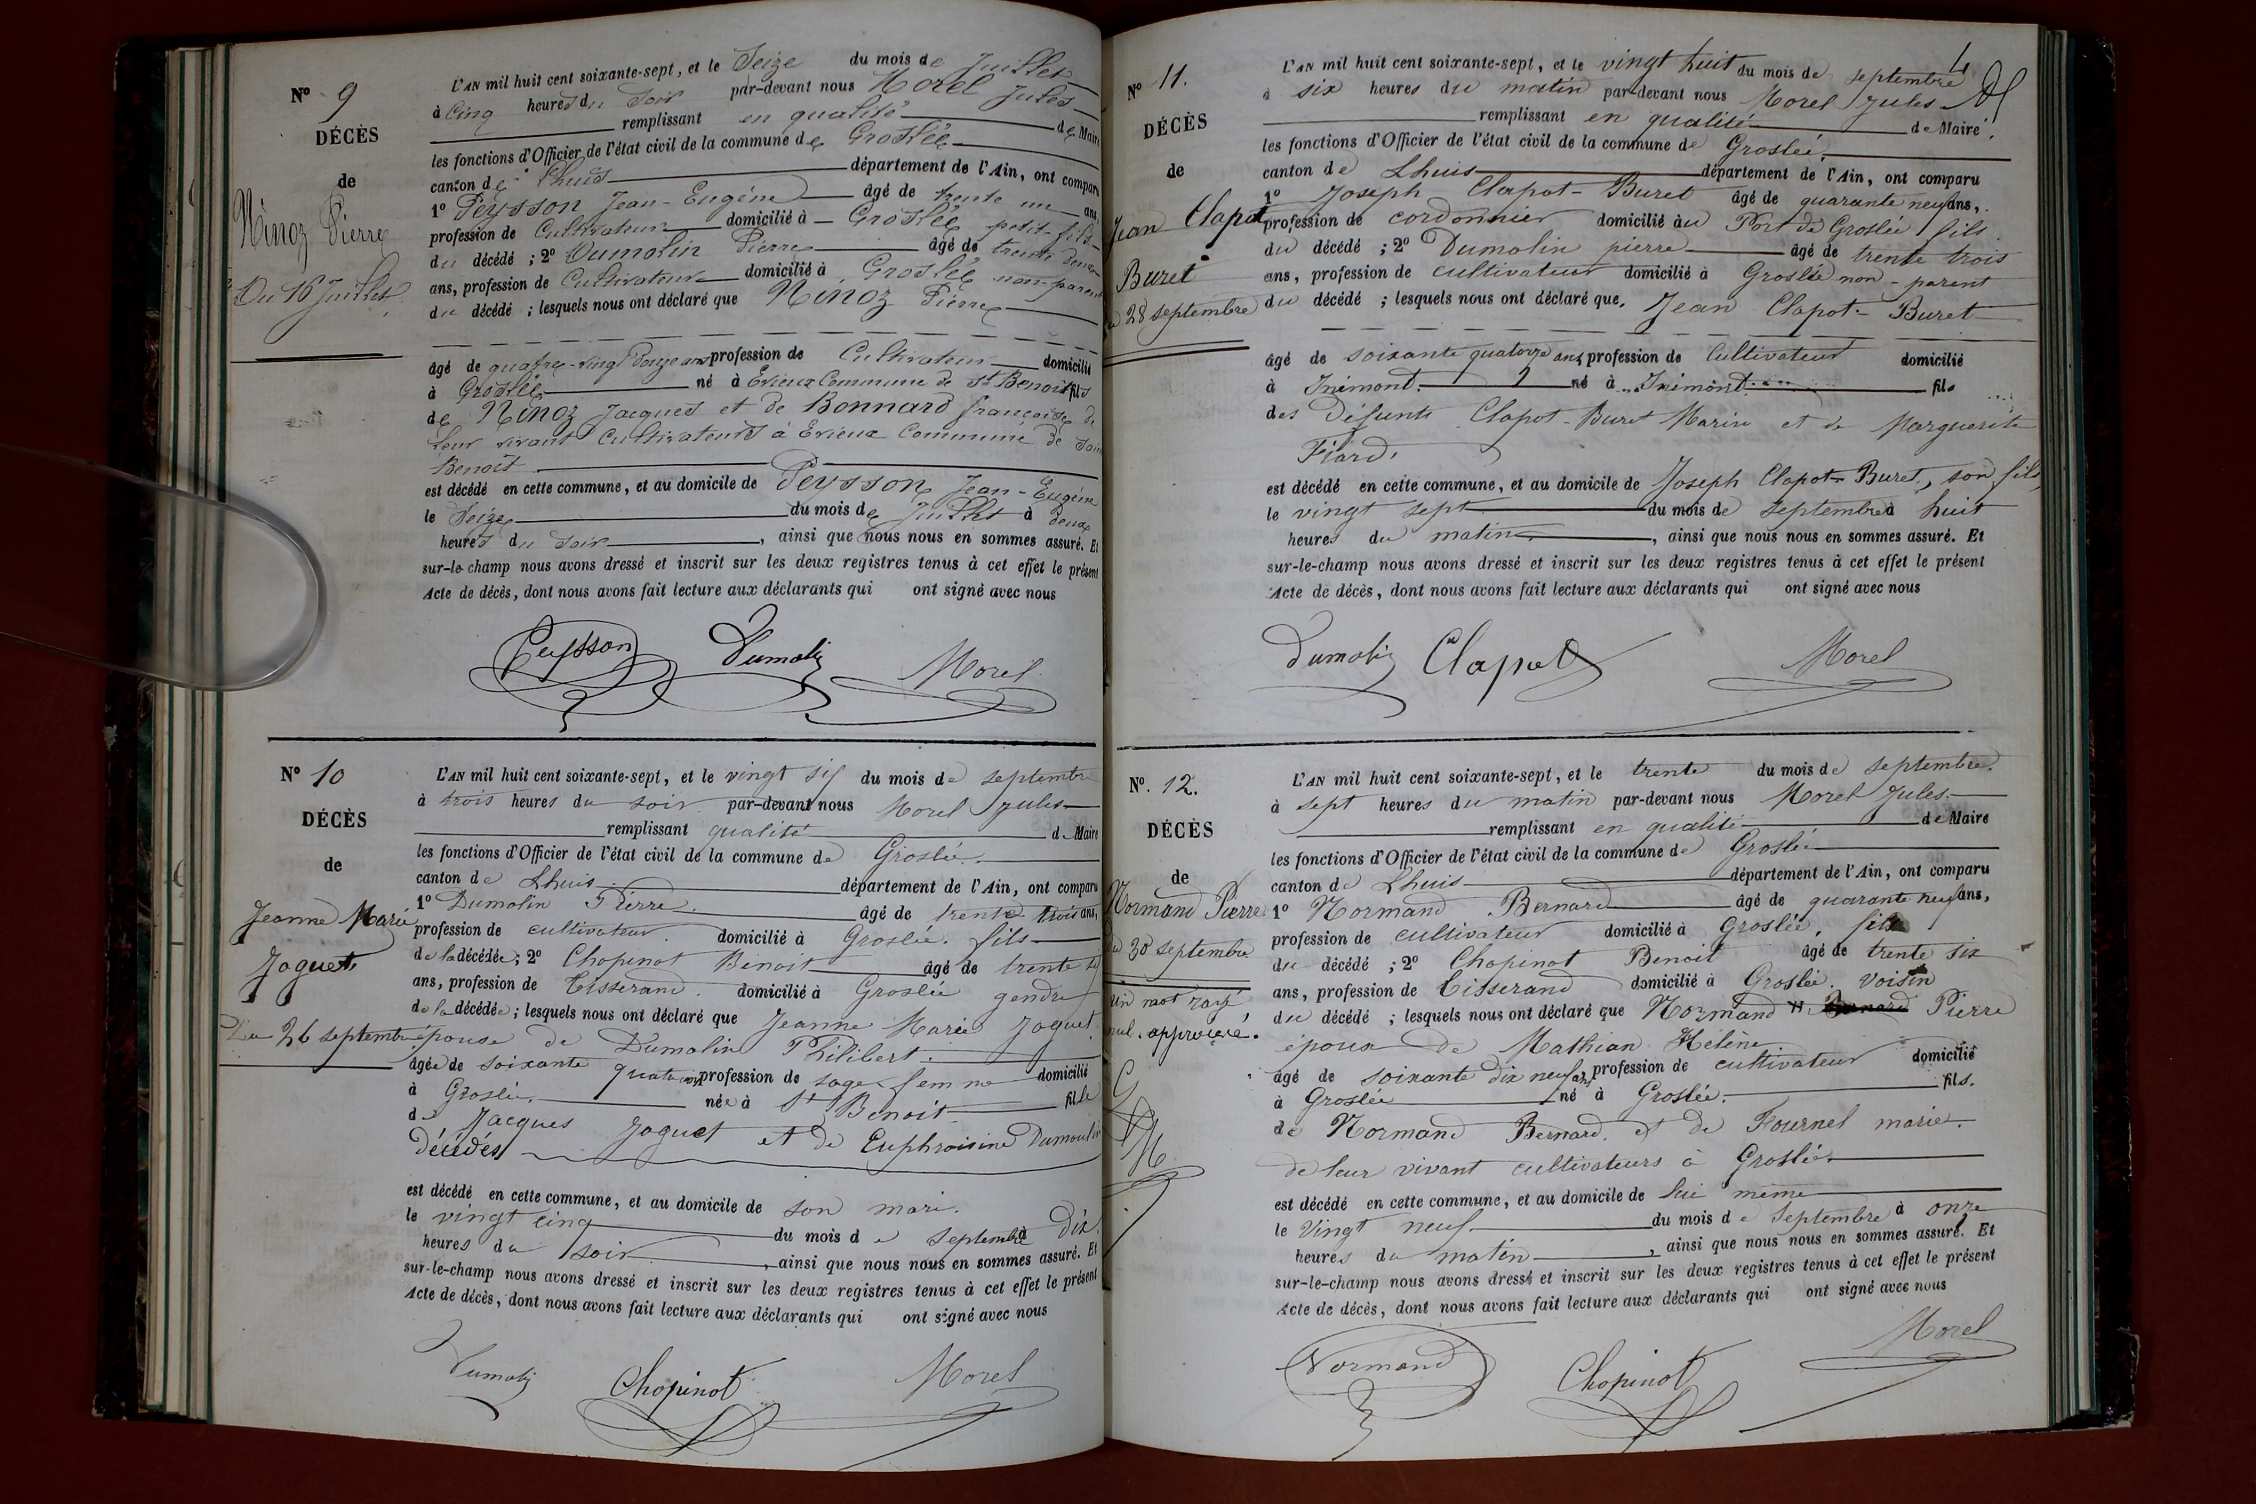 Nº 9
DÉCÈS
de
Ninoz Pierre
Du 16 Juillet
L'AN mil huit cent soixante-sept, et le Seize du mois de Juillet
à Cinq heures du Soir par-devant nous Morel Jules
remplissant en qualité de Maire
les fonctions d'Officier de l'état civil de la commune de Groslée
canton de Lhuis département de l'Ain, ont comparu
1º Peysson Jean-Eugène âgé de trente un ans,
profession de Cultivateur domicilié à Groslée petit-fils
du décédé ; 2º Dumolin Pierre âgé de trente deux
ans, profession de Cultivateur domicilié à Groslée non-parent
du décédé ; lesquels nous ont déclaré que Ninoz Pierre
âgé de quatre-vingt Douze ans profession de Cultivateur domicilié
à Groslée né à Evieux Commune de St Benoit fils
de Ninoz Jacques et de Bonnard françoise de
leur vivant Cultivateurs à Evieux Commune de Saint
Benoit
est décédé en cette commune, et au domicile de Peysson Jean-Eugène
le Seize du mois de Juillet à deux
heures du Soir, ainsi que nous nous en sommes assuré. Et
sur-le-champ nous avons dressé et inscrit sur les deux registres tenus à cet effet le présent
Acte de décès, dont nous avons fait lecture aux déclarants qui ont signé avec nous
Peysson Dumolin Morel
Nº 10
DÉCÈS
de
Jeanne Marie
Joguet
Du 26 septembre
L'AN mil huit cent soixante-sept, et le vingt six du mois de septembre
à trois heures du soir par-devant nous Morel Jules
remplissant qualité de Maire
les fonctions d'Officier de l'état civil de la commune de Groslée
canton de Lhuis département de l'Ain, ont comparu
1º Dumolin Pierre âgé de trente trois ans,
profession de cultivateur domicilié à Groslée. fils
de la décédée ; 2º Chopinot Benoit âgé de trente six
ans, profession de Tisserand domicilié à Groslée gendre
de la décédée ; lesquels nous ont déclaré que Jeanne Marie Joguet
épouse de Dumolin Philibert.
âgée de soixante quatorze ans profession de sage femme domicilié
à Groslée née à St Benoit fille
de Jacques Joguet et de Euphroisine Dumoulin
Décédés
est décédé en cette commune, et au domicile de son mari.
le vingt cinq du mois de septembre à Dix
heures du soir, ainsi que nous nous en sommes assuré. Et
sur-le-champ nous avons dressé et inscrit sur les deux registres tenus à cet effet le présent
Acte de décès, dont nous avons fait lecture aux déclarants qui ont signé avec nous
Dumolin Chopinot Morel
Nº 11.
DÉCÈS
de
Jean Clapot
Buret
28 septembre
L'AN mil huit cent soixante-sept, et le vingt huit du mois de septembre
à six heures du matin par-devant nous Morel Jules
remplissant en qualité de Maire.
les fonctions d'Officier de l'état civil de la commune de Groslée.
canton de Lhuis département de l'Ain, ont comparu
1º Joseph Clapot-Buret âgé de quarante neuf ans,
profession de cordonnier domicilié au Port de Groslée fils
du décédé ; 2º Dumolin pierre âgé de trente trois
ans, profession de cultivateur domicilié à Groslée non-parent
du décédé ; lesquels nous ont déclaré que Jean Clapot-Buret
âgé de soixante quatorze ans, profession de Cultivateur domicilié
à Inémont. né à Inémont fils
des Défunts Clapot-Buret Marin et de Marguerite
Fiard.
est décédé en cette commune, et au domicile de Joseph Clapot-Buret, son fils,
le vingt sept du mois de septembre à huit
heures du matin, ainsi que nous nous en sommes assuré. Et
sur-le-champ nous avons dressé et inscrit sur les deux registres tenus à cet effet le présent
Acte de décès, dont nous avons fait lecture aux déclarants qui ont signé avec nous
Dumolin Clapot Morel
Nº 12.
DÉCÈS
de
Normand Pierre
Du 30 septembre
Un mot rayé
nul. approuvé.
L'AN mil huit cent soixante-sept, et le trente du mois de septembre.
à sept heures du matin par-devant nous Morel Jules.
remplissant en qualité de Maire
les fonctions d'Officier de l'état civil de la commune de Groslée
canton de Lhuis département de l'Ain, ont comparu
1º Normand Bernard âgé de quarante neuf ans,
profession de cultivateur domicilié à Groslée, fils
du décédé ; 2º Chopinot Benoit âgé de trente six
ans, profession de Tisserand domicilié à Groslée. voisin
du décédé ; lesquels nous ont déclaré que Normand Bernard Pierre
époux de Mathian Hélène
âgé de soixante dix neuf ans profession de cultivateur domicilié
à Groslée né à Groslée. fils.
de Normand Bernard. et de Fournel marie.
de leur vivant cultivateurs à Groslée
est décédé en cette commune, et au domicile de lui même
le Vingt neuf du mois de septembre à onze
heures du matin, ainsi que nous nous en sommes assuré. Et
sur-le-champ nous avons dressé et inscrit sur les deux registres tenus à cet effet le présent
Acte de décès, dont nous avons fait lecture aux déclarants qui ont signé avec nous
Normand Chopinot Morel